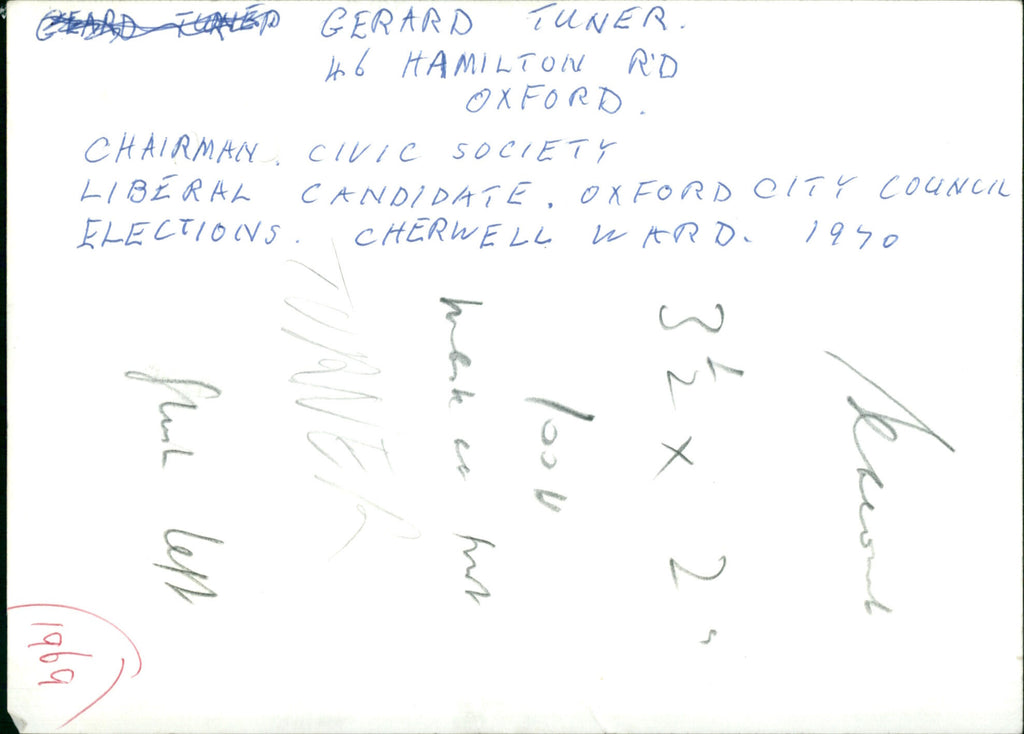 GERARD TUNER GERARD TUNER.
46 HAMILTON RD
OXFORD.
CHAIRMAN. CIVIC SOCIETY
LIBERAL CANDIDATE. OXFORD CITY COUNCIL
ELECTIONS. CHERWELL WARD. 1970
3½ x 2"
mask as print
TURNER
flush left
1969